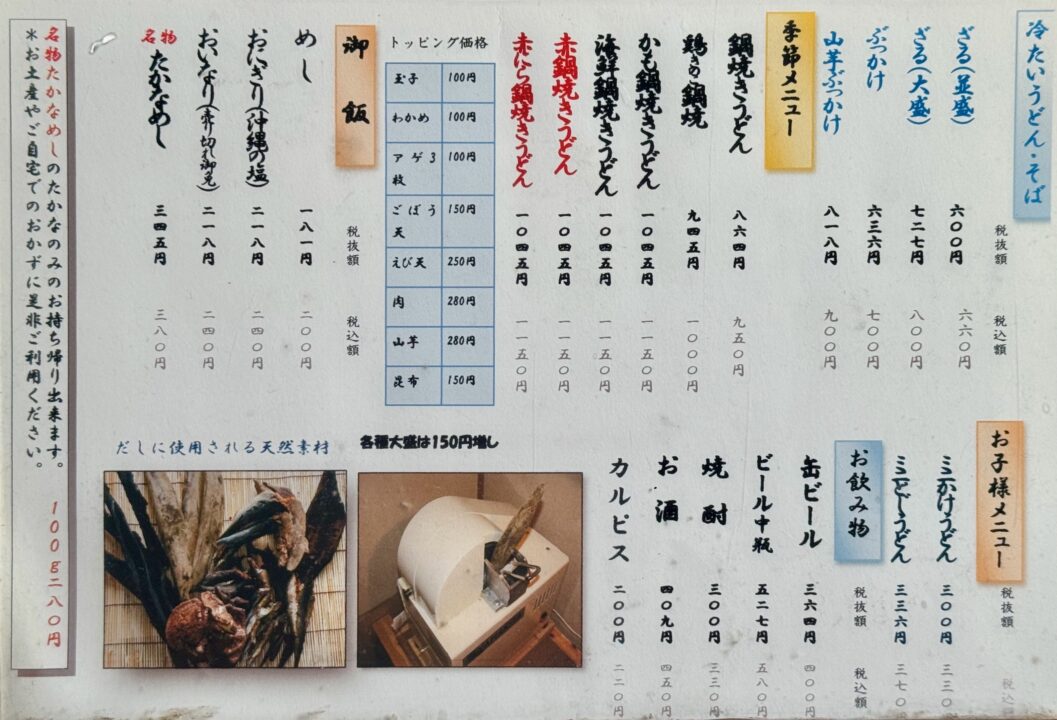 冷たいうどん・そば
税抜額 税込額
ざる(並盛) 六〇〇円 六六〇円
ざる(大盛) 七二七円 八〇〇円
ぶっかけ 六三六円 七〇〇円
山芋ぶっかけ 八一八円 九〇〇円
季節メニュー
鍋焼きうどん 八六四円 九五〇円
鶏きのこ鍋焼 九四五円 一〇〇〇円
かも鍋焼きうどん 一〇四五円 一一五〇円
海鮮鍋焼きうどん 一〇四五円 一一五〇円
赤鍋焼きうどん 一〇四五円 一一五〇円
赤にら鍋焼きうどん 一〇四五円 一一五〇円
トッピング価格
玉子 100円
わかめ 100円
アゲ3枚 100円
ごぼう天 150円
えび天 250円
肉 280円
山芋 280円
昆布 150円
各種大盛は150円増し
御飯
税抜額 税込額
めし 一八一円 二〇〇円
おにぎり(沖縄の塩) 二一八円 二四〇円
おいなり(売り切れ御免) 二一八円 二四〇円
名物 たかなめし 三四五円 三八〇円
名物たかなめしのたかなのみのお持ち帰り出来ます。 100g二八〇円
*お土産やご自宅でのおかずに是非ご利用ください。
だしに使用される天然素材
お子様メニュー
税抜額 税込額
ミニかけうどん 三〇〇円 三三〇
ミニごぼううどん 三三六円 三七〇
お飲み物
税抜額 税込額
缶ビール 三六四円 四〇〇円
ビール中瓶 五二七円 五八〇円
焼酎 三〇〇円 三三〇円
お酒 四〇九円 四五〇円
カルピス 二〇〇円 二二〇円